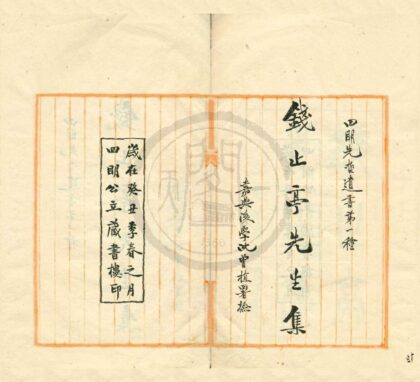 四明先哲遺書第一種
錢止亭先生集
嘉興後學沈曾植署檢
歲在癸丑季春之月
四明公立藏書樓印